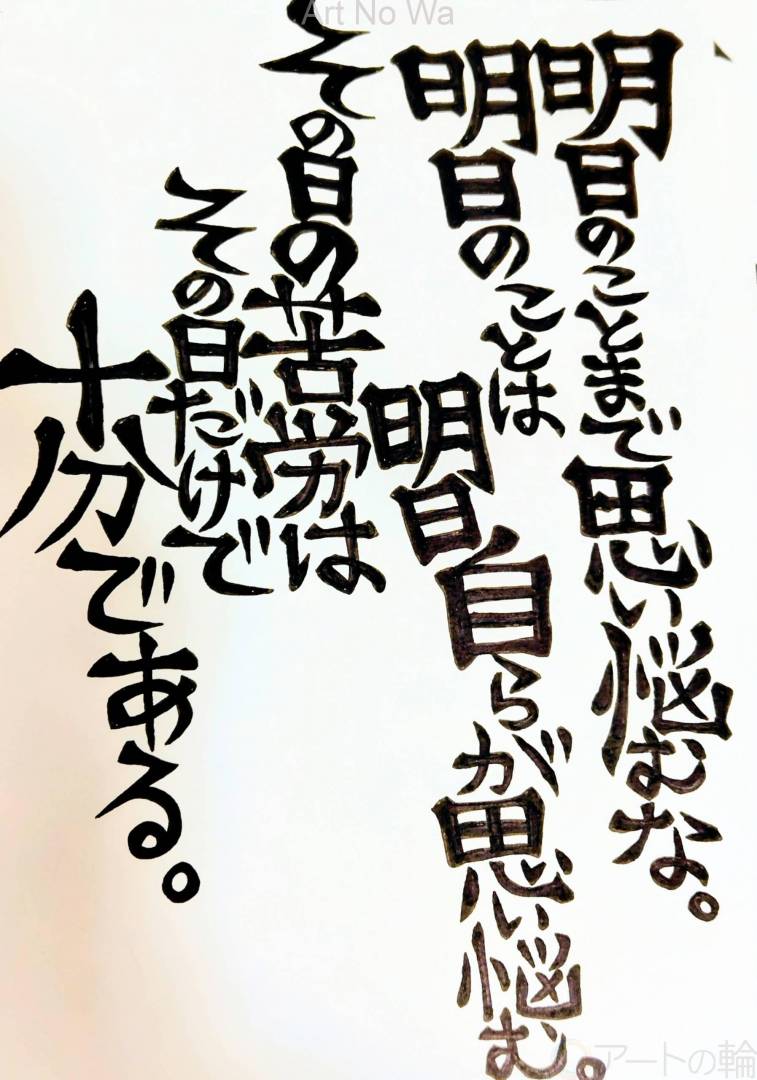 Art No Wa
明日のことまで思い悩むな。
明日のことは
明日自らが思い悩む。
その日の苦労は
その日だけで
十分である。
アートの輪